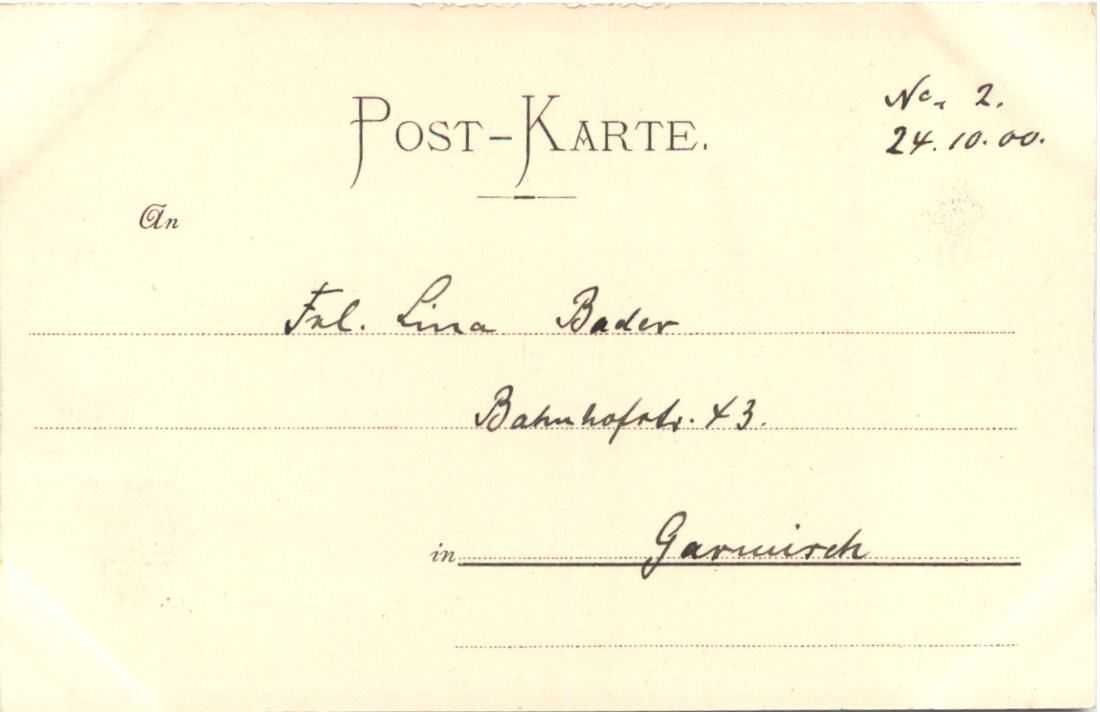 POST-KARTE.
No. 2.
24.10.00.
An
Frl. Lina Bader
Bahnhofstr. 43.
in Garmisch